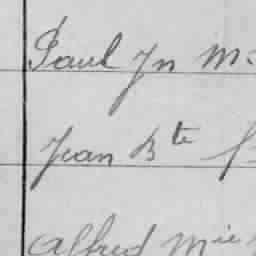 Paul Jn M
Jean Bte
Alfred Mie